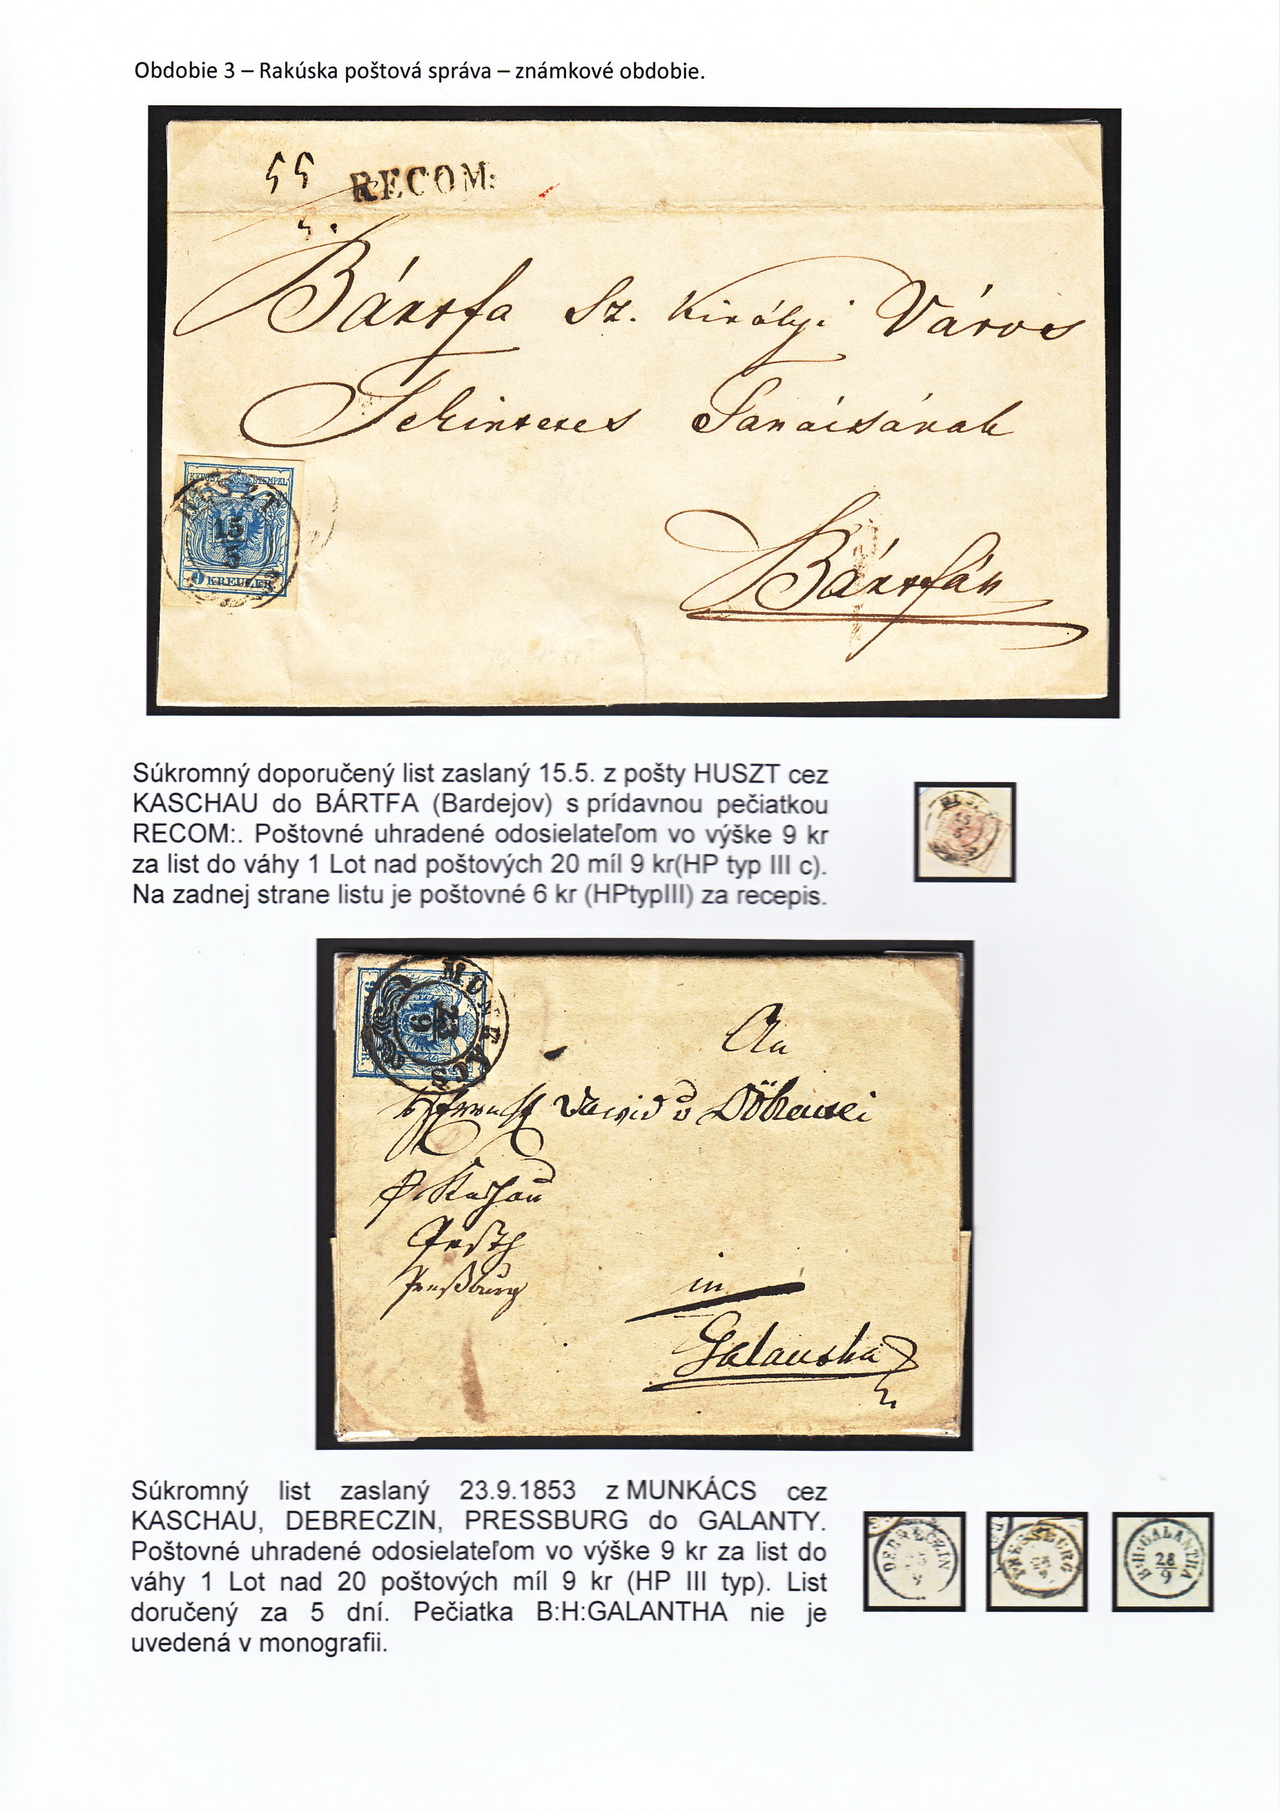 Obdobie 3 – Rakúska poštová správa – známkové obdobie.
55
RECOM:
Bártfa Sz. Királyi Város
Tekintetes Tanácsának
HUSZT
15
5
9 KREUZER
Bártfán
Súkromný doporučený list zaslaný 15.5. z pošty HUSZT cez
KASCHAU do BÁRTFA (Bardejov) s prídavnou pečiatkou
RECOM:. Poštovné uhradené odosielateľom vo výške 9 kr
za list do váhy 1 Lot nad poštových 20 míl 9 kr(HP typ III c).
Na zadnej strane listu je poštovné 6 kr (HPtypIII) za recepis.
MUNKÁCS
23
9
An
David
Kaschau
Pesth
Preßburg
in
Galantha
Súkromný list zaslaný 23.9.1853 z MUNKÁCS cez
KASCHAU, DEBRECZIN, PRESSBURG do GALANTY.
Poštovné uhradené odosielateľom vo výške 9 kr za list do
váhy 1 Lot nad 20 poštových míl 9 kr (HP III typ). List
doručený za 5 dní. Pečiatka B:H:GALANTHA nie je
uvedená v monografii.
DEBRECZIN
PRESSBURG
B:H:GALANTHA
28
9